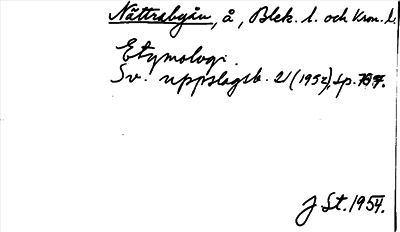 Nättrabyån, å, Blek. l. och Kron. l.
Etymologi.
Sv. uppslagsb. 21 (1952), sp. 787.
J St. 1954.